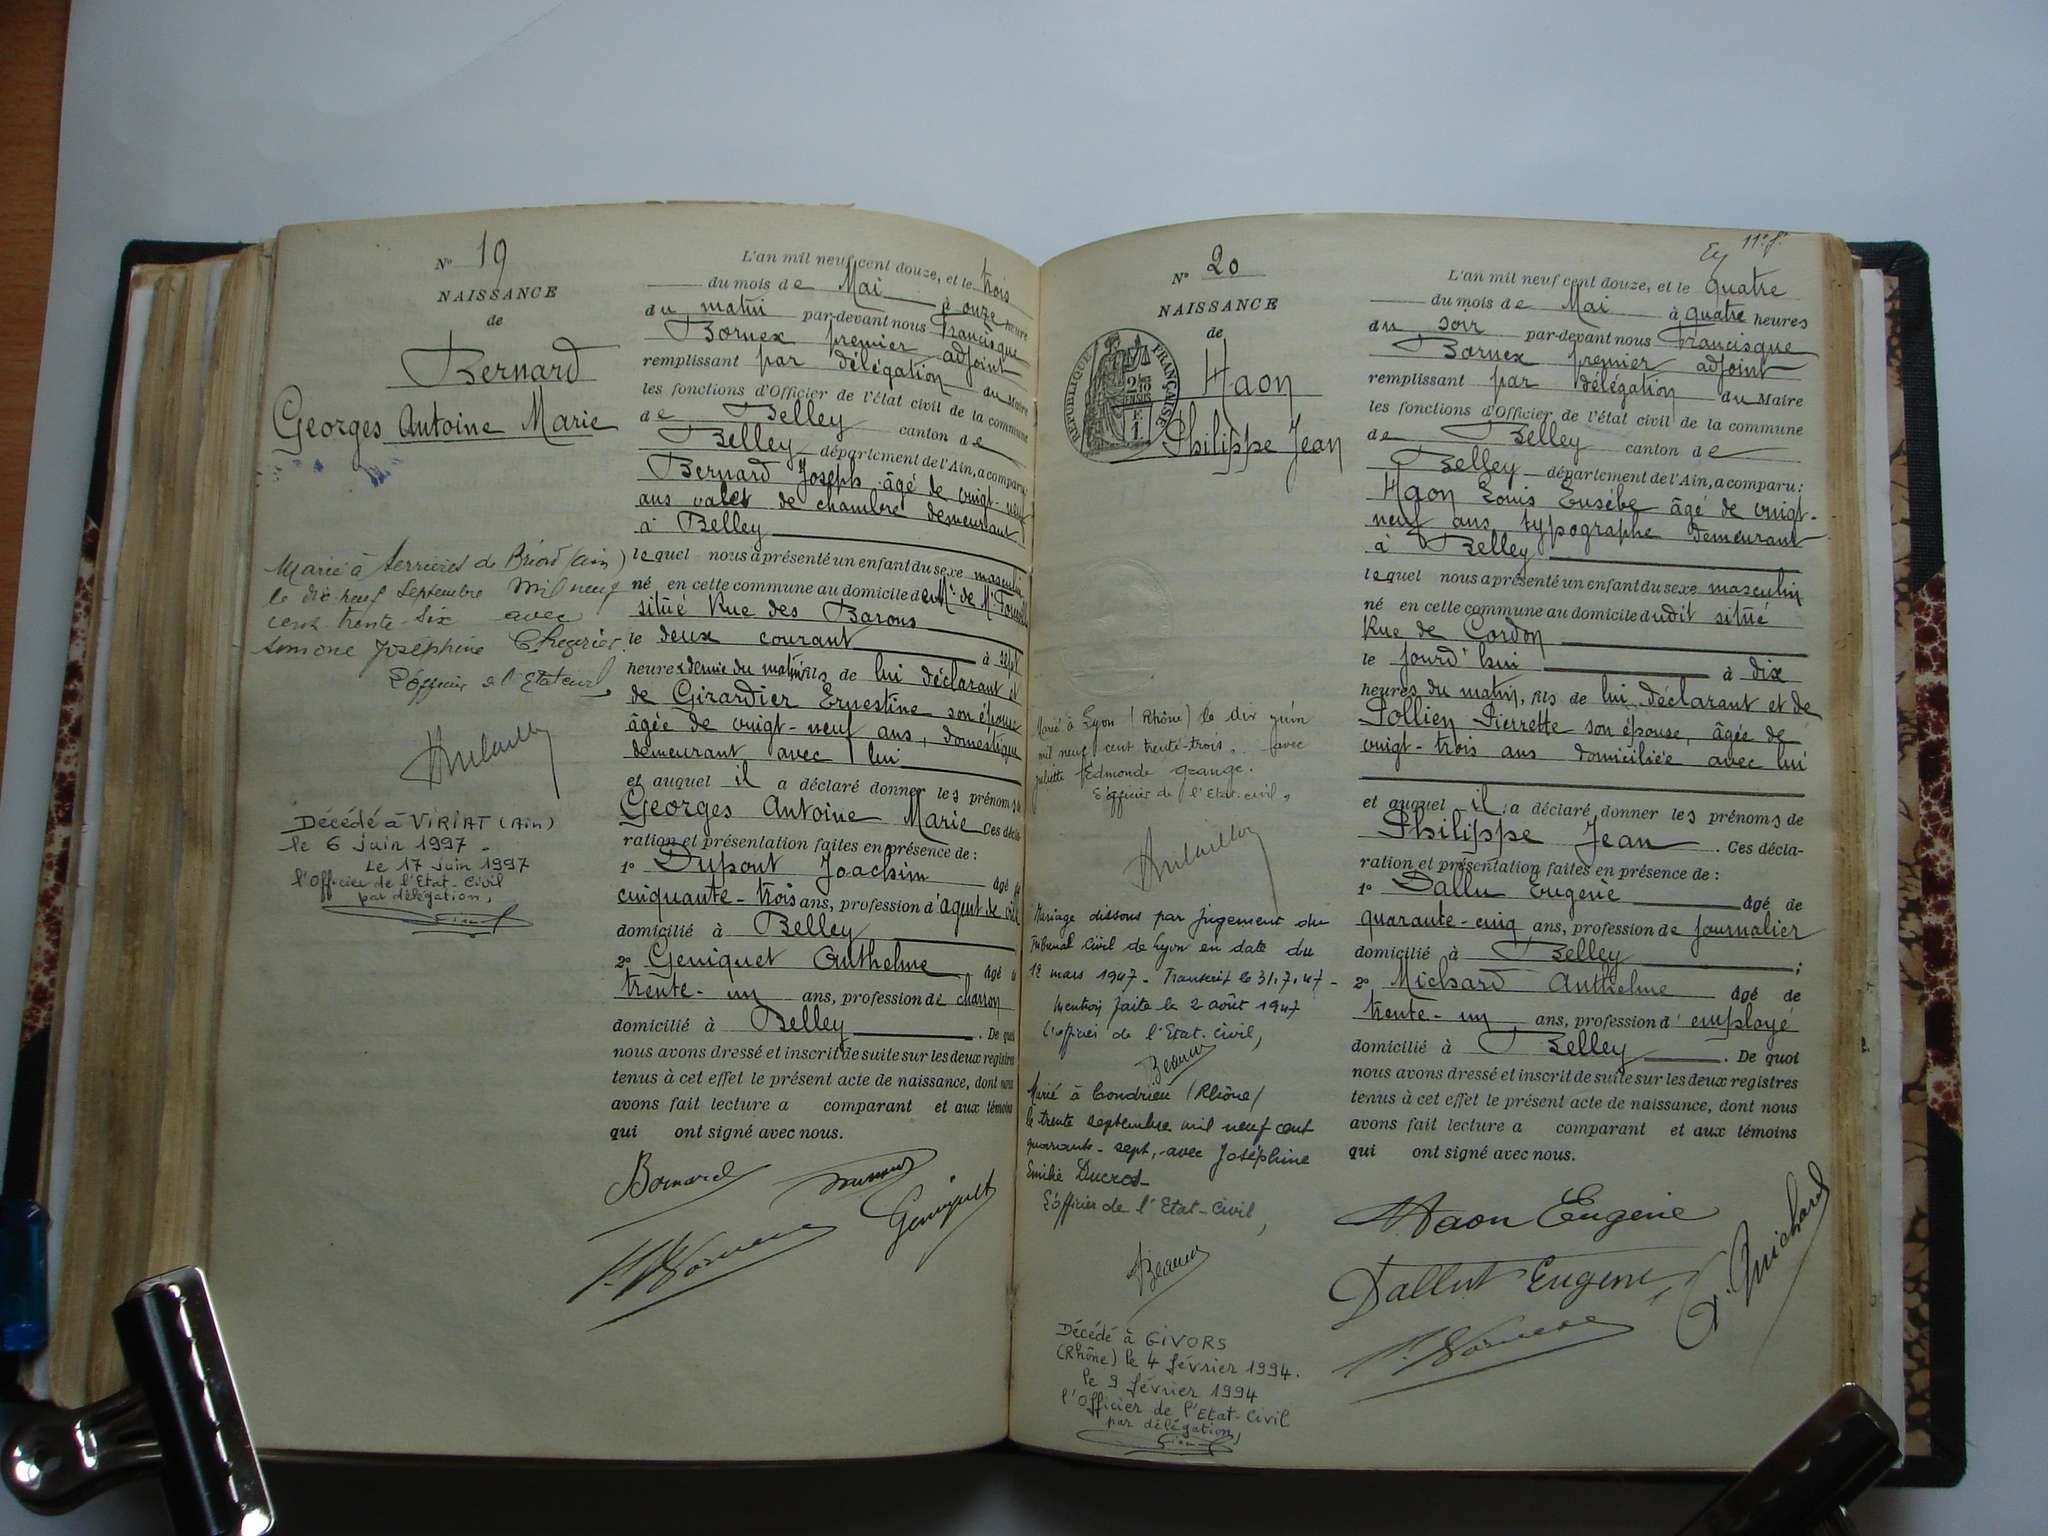 N° 19
NAISSANCE
de
Bernard
Georges Antoine Marie
Marié à Serrières de Briord (Ain)
le dix neuf Septembre mil neuf
cent trente-six avec
Simone Joséphine
L'officier de l'Etat civil,
Décédé à VIRIAT (Ain)
le 6 juin 1997 -
Le 17 juin 1997
l'Officier de l'Etat-Civil
par délégation,
L'an mil neuf cent douze, et le trois
du mois de Mai à onze heures
du matin par-devant nous Francisque
Bornex premier adjoint
remplissant par délégation du Maire
les fonctions d'Officier de l'état civil de la commune
de Belley canton de
Belley département de l'Ain, a comparu:
Bernard Joseph âgé de vingt-neuf
ans valet de chambre demeurant
à Belley
lequel nous a présenté un enfant du sexe masculin
né en cette commune au domicile de
situé Rue des Barons
le deux courant à sept
heures & demie du matin, fils de lui déclarant et
de Girardier Ernestine son épouse
âgée de vingt-neuf ans, domestique
demeurant avec lui
et auquel il a déclaré donner les prénoms de
Georges Antoine Marie Ces décla-
ration et présentation faites en présence de :
1° Dupont Joachim âgé de
cinquante-trois ans, profession d'agent de ville
domicilié à Belley
2° Geniquet Anthelme âgé de
trente-un ans, profession de charron
domicilié à Belley . De quoi
nous avons dressé et inscrit de suite sur les deux registres
tenus à cet effet le présent acte de naissance, dont nous
avons fait lecture a comparant et aux témoins
qui ont signé avec nous.
Bernard
Geniquet
N° 20
NAISSANCE
de
REPUBLIQUE FRANÇAISE
Haon
Philippe Jean
Marié à Lyon (Rhône) le dix juin
mil neuf cent trente-trois, avec
Juliette Edmonde Grange.
L'officier de l'Etat-civil,
Mariage dissous par jugement du
Tribunal Civil de Lyon en date du
12 mars 1947 - Transcrit le 31.7.47 -
Mention faite le 2 août 1947
L'officier de l'Etat-Civil,
Marié à Condrieu (Rhône)
le trente septembre mil neuf cent
quarante-sept, avec Joséphine
Emilie Ducros -
L'officier de l'Etat-Civil,
Décédé à GIVORS
(Rhône) le 4 février 1994.
le 9 février 1994
l'Officier de l'Etat-Civil
par délégation,
11e f.
L'an mil neuf cent douze, et le quatre
du mois de Mai à quatre heures
du soir par-devant nous Francisque
Bornex premier adjoint
remplissant par délégation du Maire
les fonctions d'Officier de l'état civil de la commune
de Belley canton de
Belley département de l'Ain, a comparu :
Haon Louis Eusèbe âgé de vingt-
neuf ans typographe demeurant
à Belley
lequel nous a présenté un enfant du sexe masculin
né en cette commune au domicile dudit situé
Rue de Cordon
le jourd'hui à dix
heures du matin, fils de lui déclarant et de
Pollien Pierrette son épouse, âgée de
vingt-trois ans domiciliée avec lui
et auquel il a déclaré donner les prénoms de
Philippe Jean . Ces décla-
ration et présentation faites en présence de :
1° Dallu Eugène âgé de
quarante-cinq ans, profession de journalier
domicilié à Belley ;
2° Michard Anthelme âgé de
trente-un ans, profession d'employé
domicilié à Belley . De quoi
nous avons dressé et inscrit de suite sur les deux registres
tenus à cet effet le présent acte de naissance, dont nous
avons fait lecture a comparant et aux témoins
qui ont signé avec nous.
Haon Eugène
Dallut Eugène
Michard